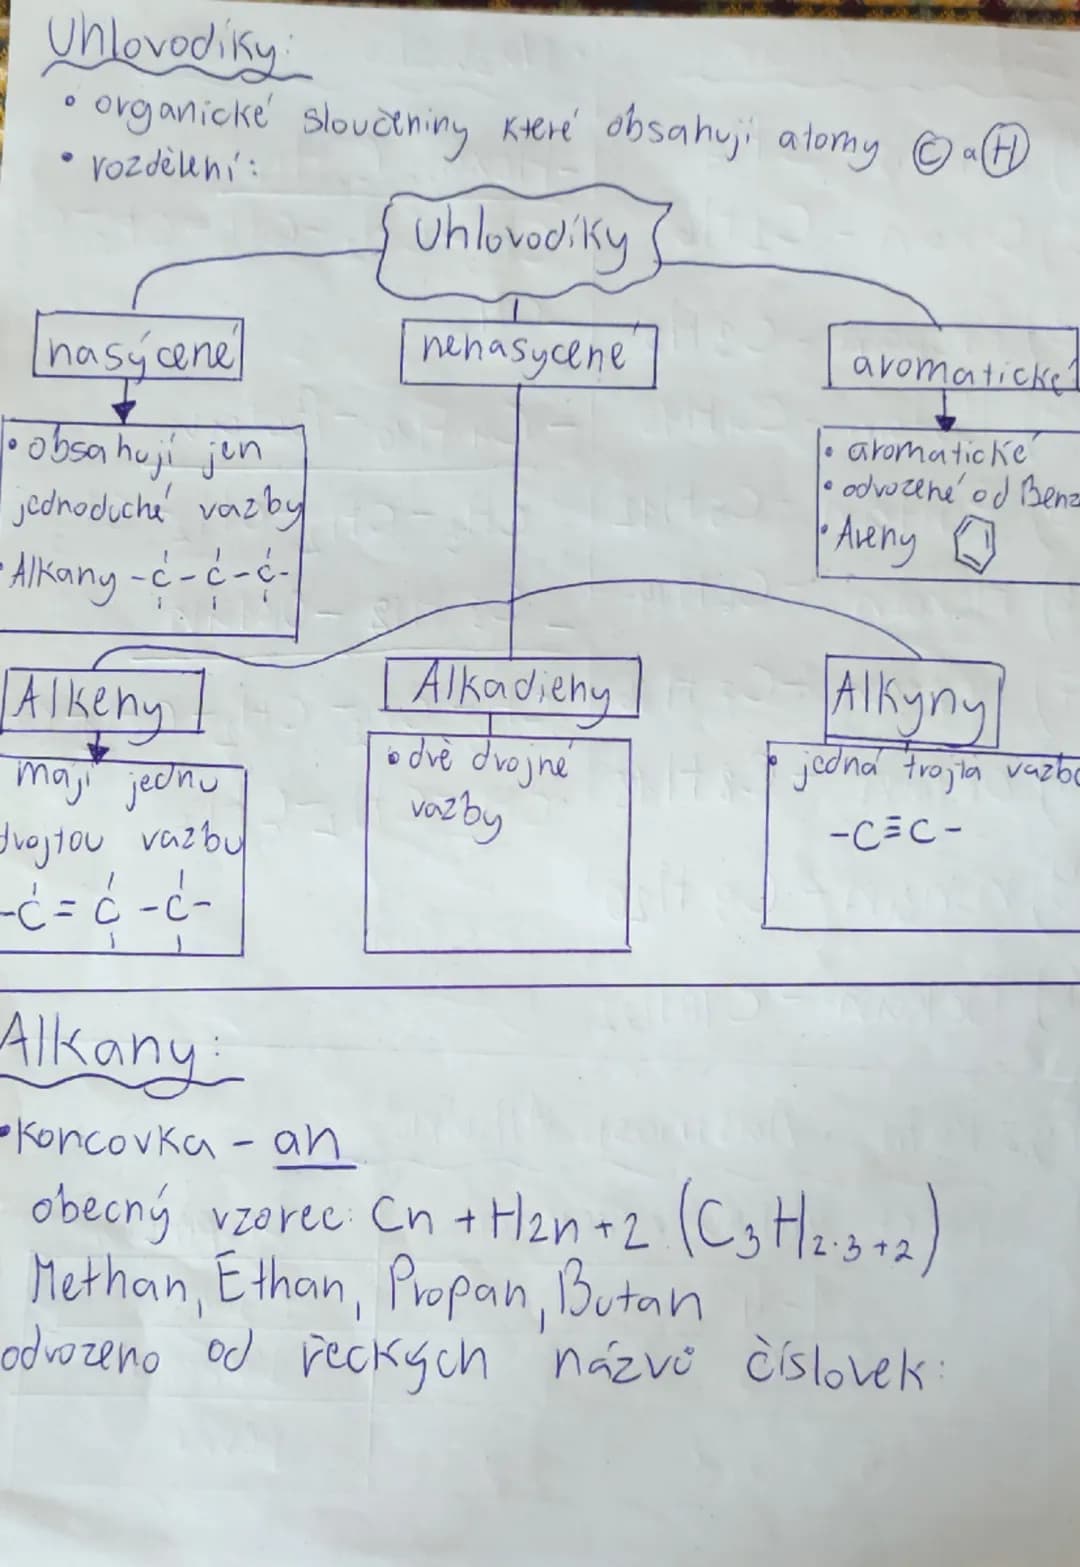 Uhlovodíky:
• organické sloučeniny které obsahují atomy C a H
• rozdělení:
Uhlovodíky
nasýcené
nenasycené
aromatické
• obsahují jen
jednoduché vazby
• Alkany -C-C-C-
• aromatické
• odvozené od Benz
• Areny
Alkeny
Alkadieny
Alkyny
mají jednu
dvojtou vazbu
-C=C-C-
• dvě dvojné
vazby
• jedná trojtá vazba
-C≡C-
Alkany:
• Koncovka - an
obecný vzorec: Cn + H2n+2 (C₃H₂.₃₊₂)
Methan, Ethan, Propan, Butan
odvozeno od řeckých názvů číslovek: